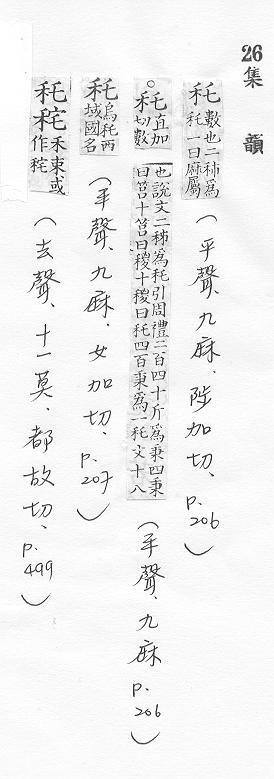 26 集韻
秅 數也二秭為秅一曰麻屬(平聲、九麻、陟加切、p.206)
○秅 直加切數也說文二秭為秅引周禮二百四十斤為秉四秉曰筥十筥曰稯十稯曰秅四百秉為一秅文十八(平聲、九麻 p.206)
秅 烏秅西域國名(平聲、九麻、女加切、p.207)
秅秺 禾束或作秺(去聲、十一莫、都故切、p.499)